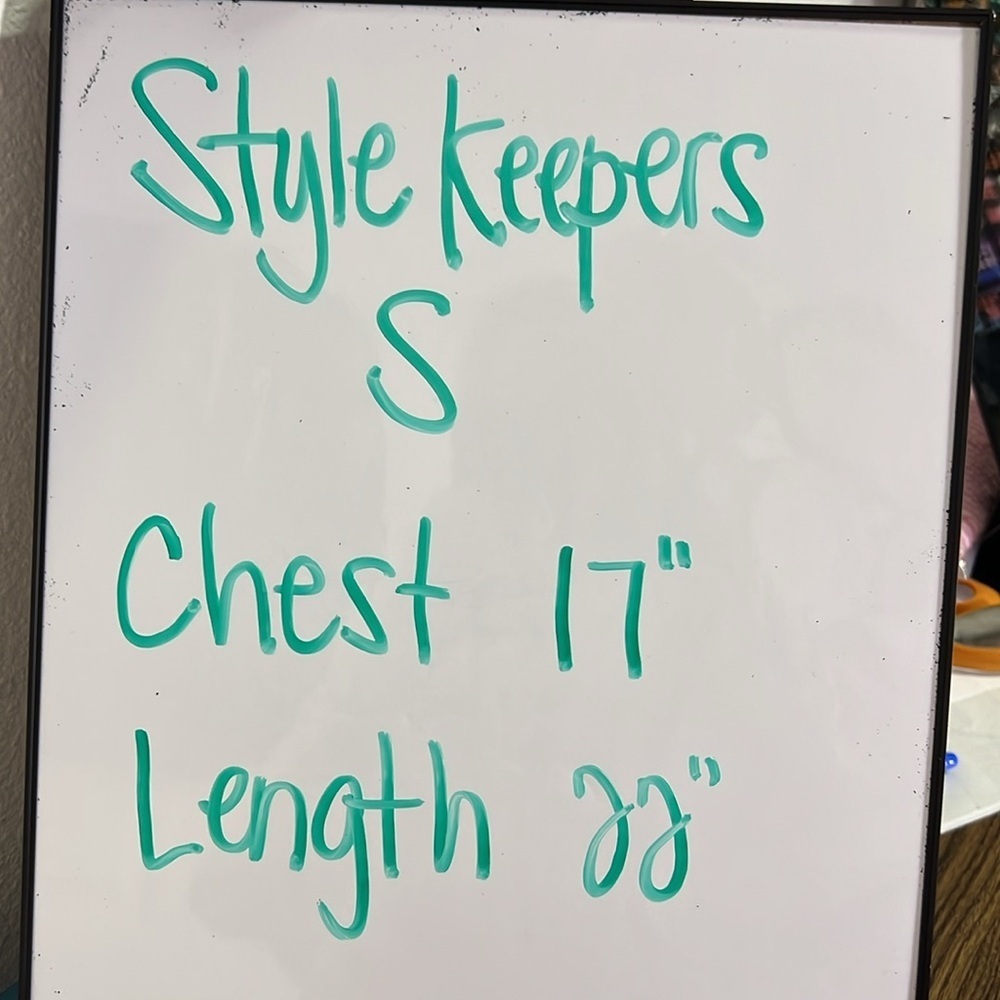 Style Keepers
S
Chest 17"
Length 22"